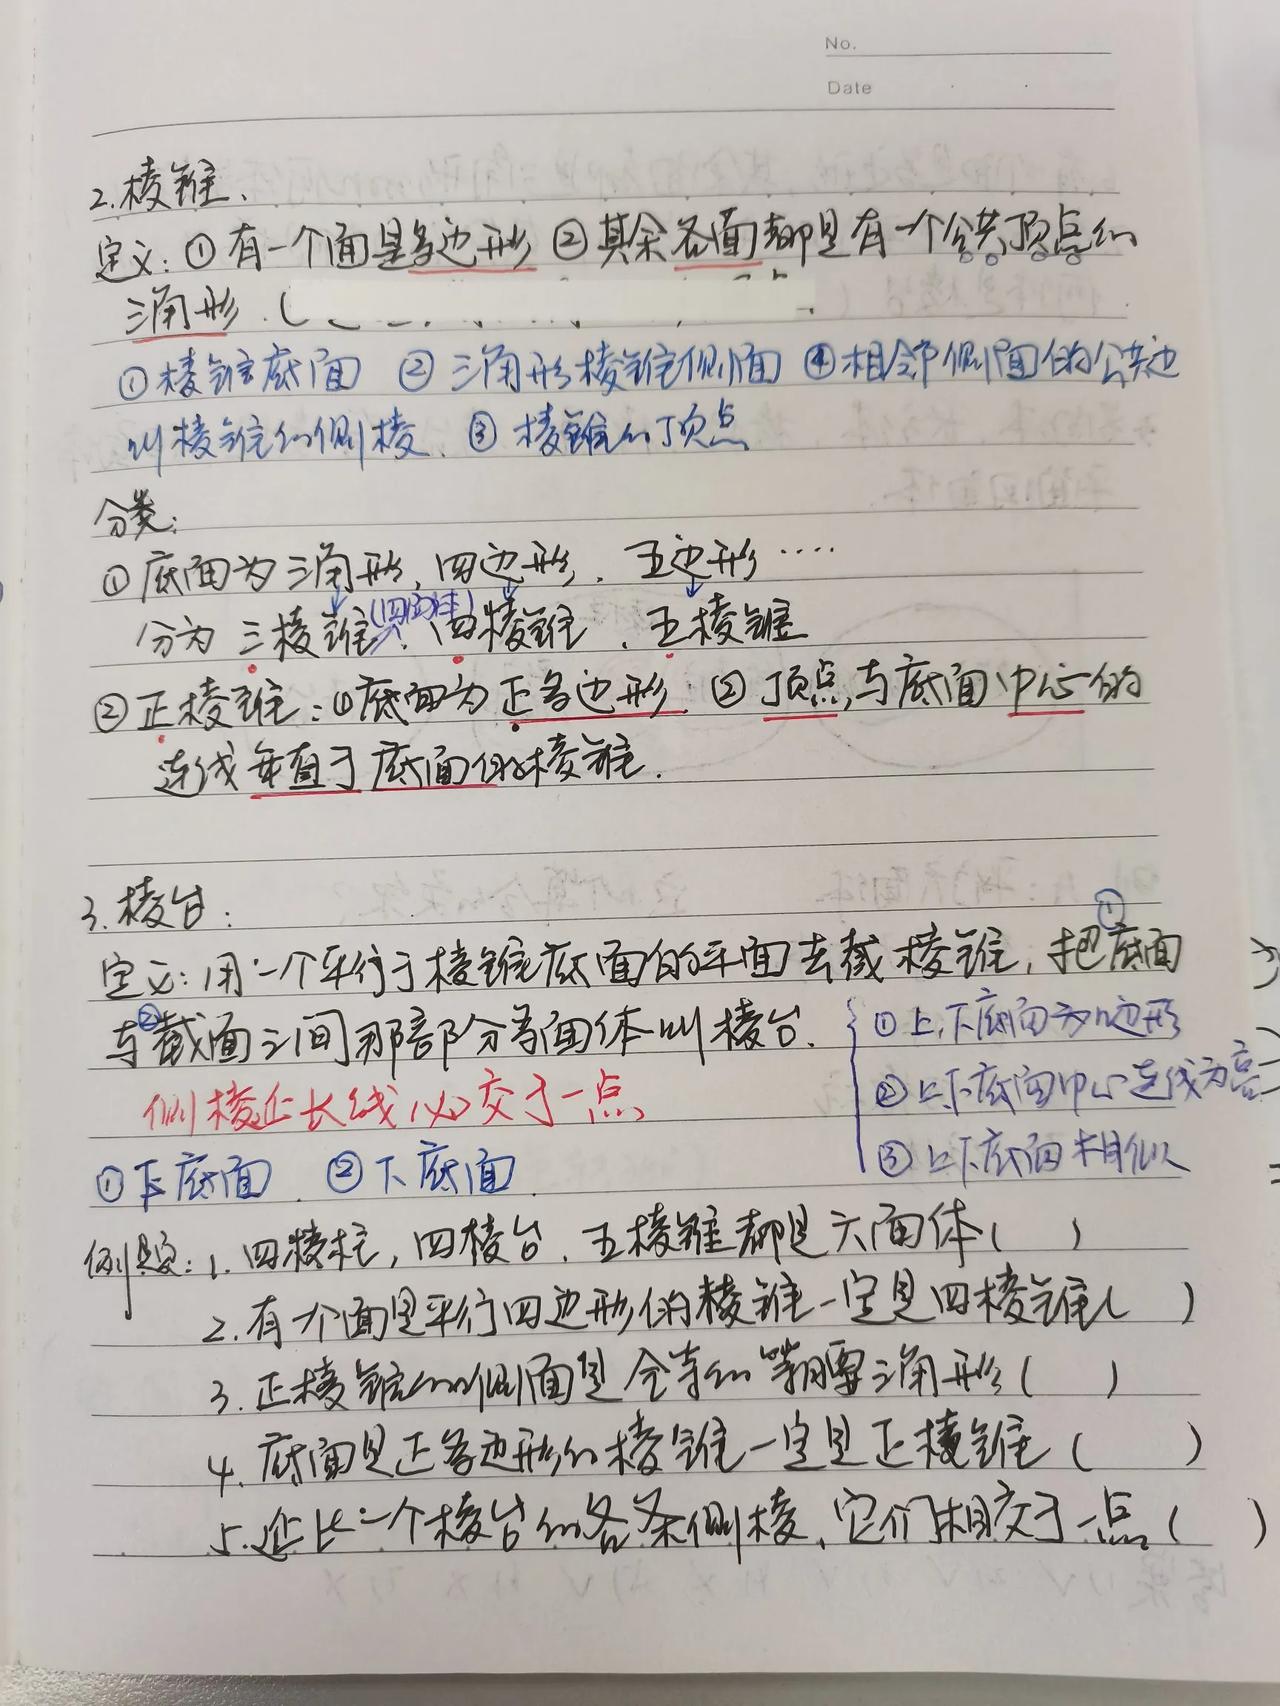 No.
Date
2.棱锥、
定义:①有一个面是多边形 ②其余各面都是有一个公共顶点的
三角形.(
①棱锥底面 ②三角形棱锥侧面 ④相邻侧面的公共边
叫棱锥的侧棱. ③棱锥的顶点
分类:
①底面为三角形、四边形、五边形……
分为三棱锥(四面体)、四棱锥、五棱锥
②正棱锥:①底面为正多边形.②顶点与底面中心的
连线垂直于底面的棱锥.
3.棱台:
①
定义:用一个平行于棱锥底面的平面去截棱锥,把底面
与②截面之间那部分多面体叫棱台.
①上、下底面为n边形
②上下底面中心连线为高
③上下底面相似
侧棱延长线必交于一点
①下底面. ②下底面.
例题:1.四棱柱,四棱台、五棱锥都是六面体( )
2.有一个面是平行四边形的棱锥一定是四棱锥( )
3.正棱锥的侧面是全等的等腰三角形( )
4.底面是正多边形的棱锥一定是正棱锥( )
5.延长一个棱台的各条侧棱,它们相交于一点( )